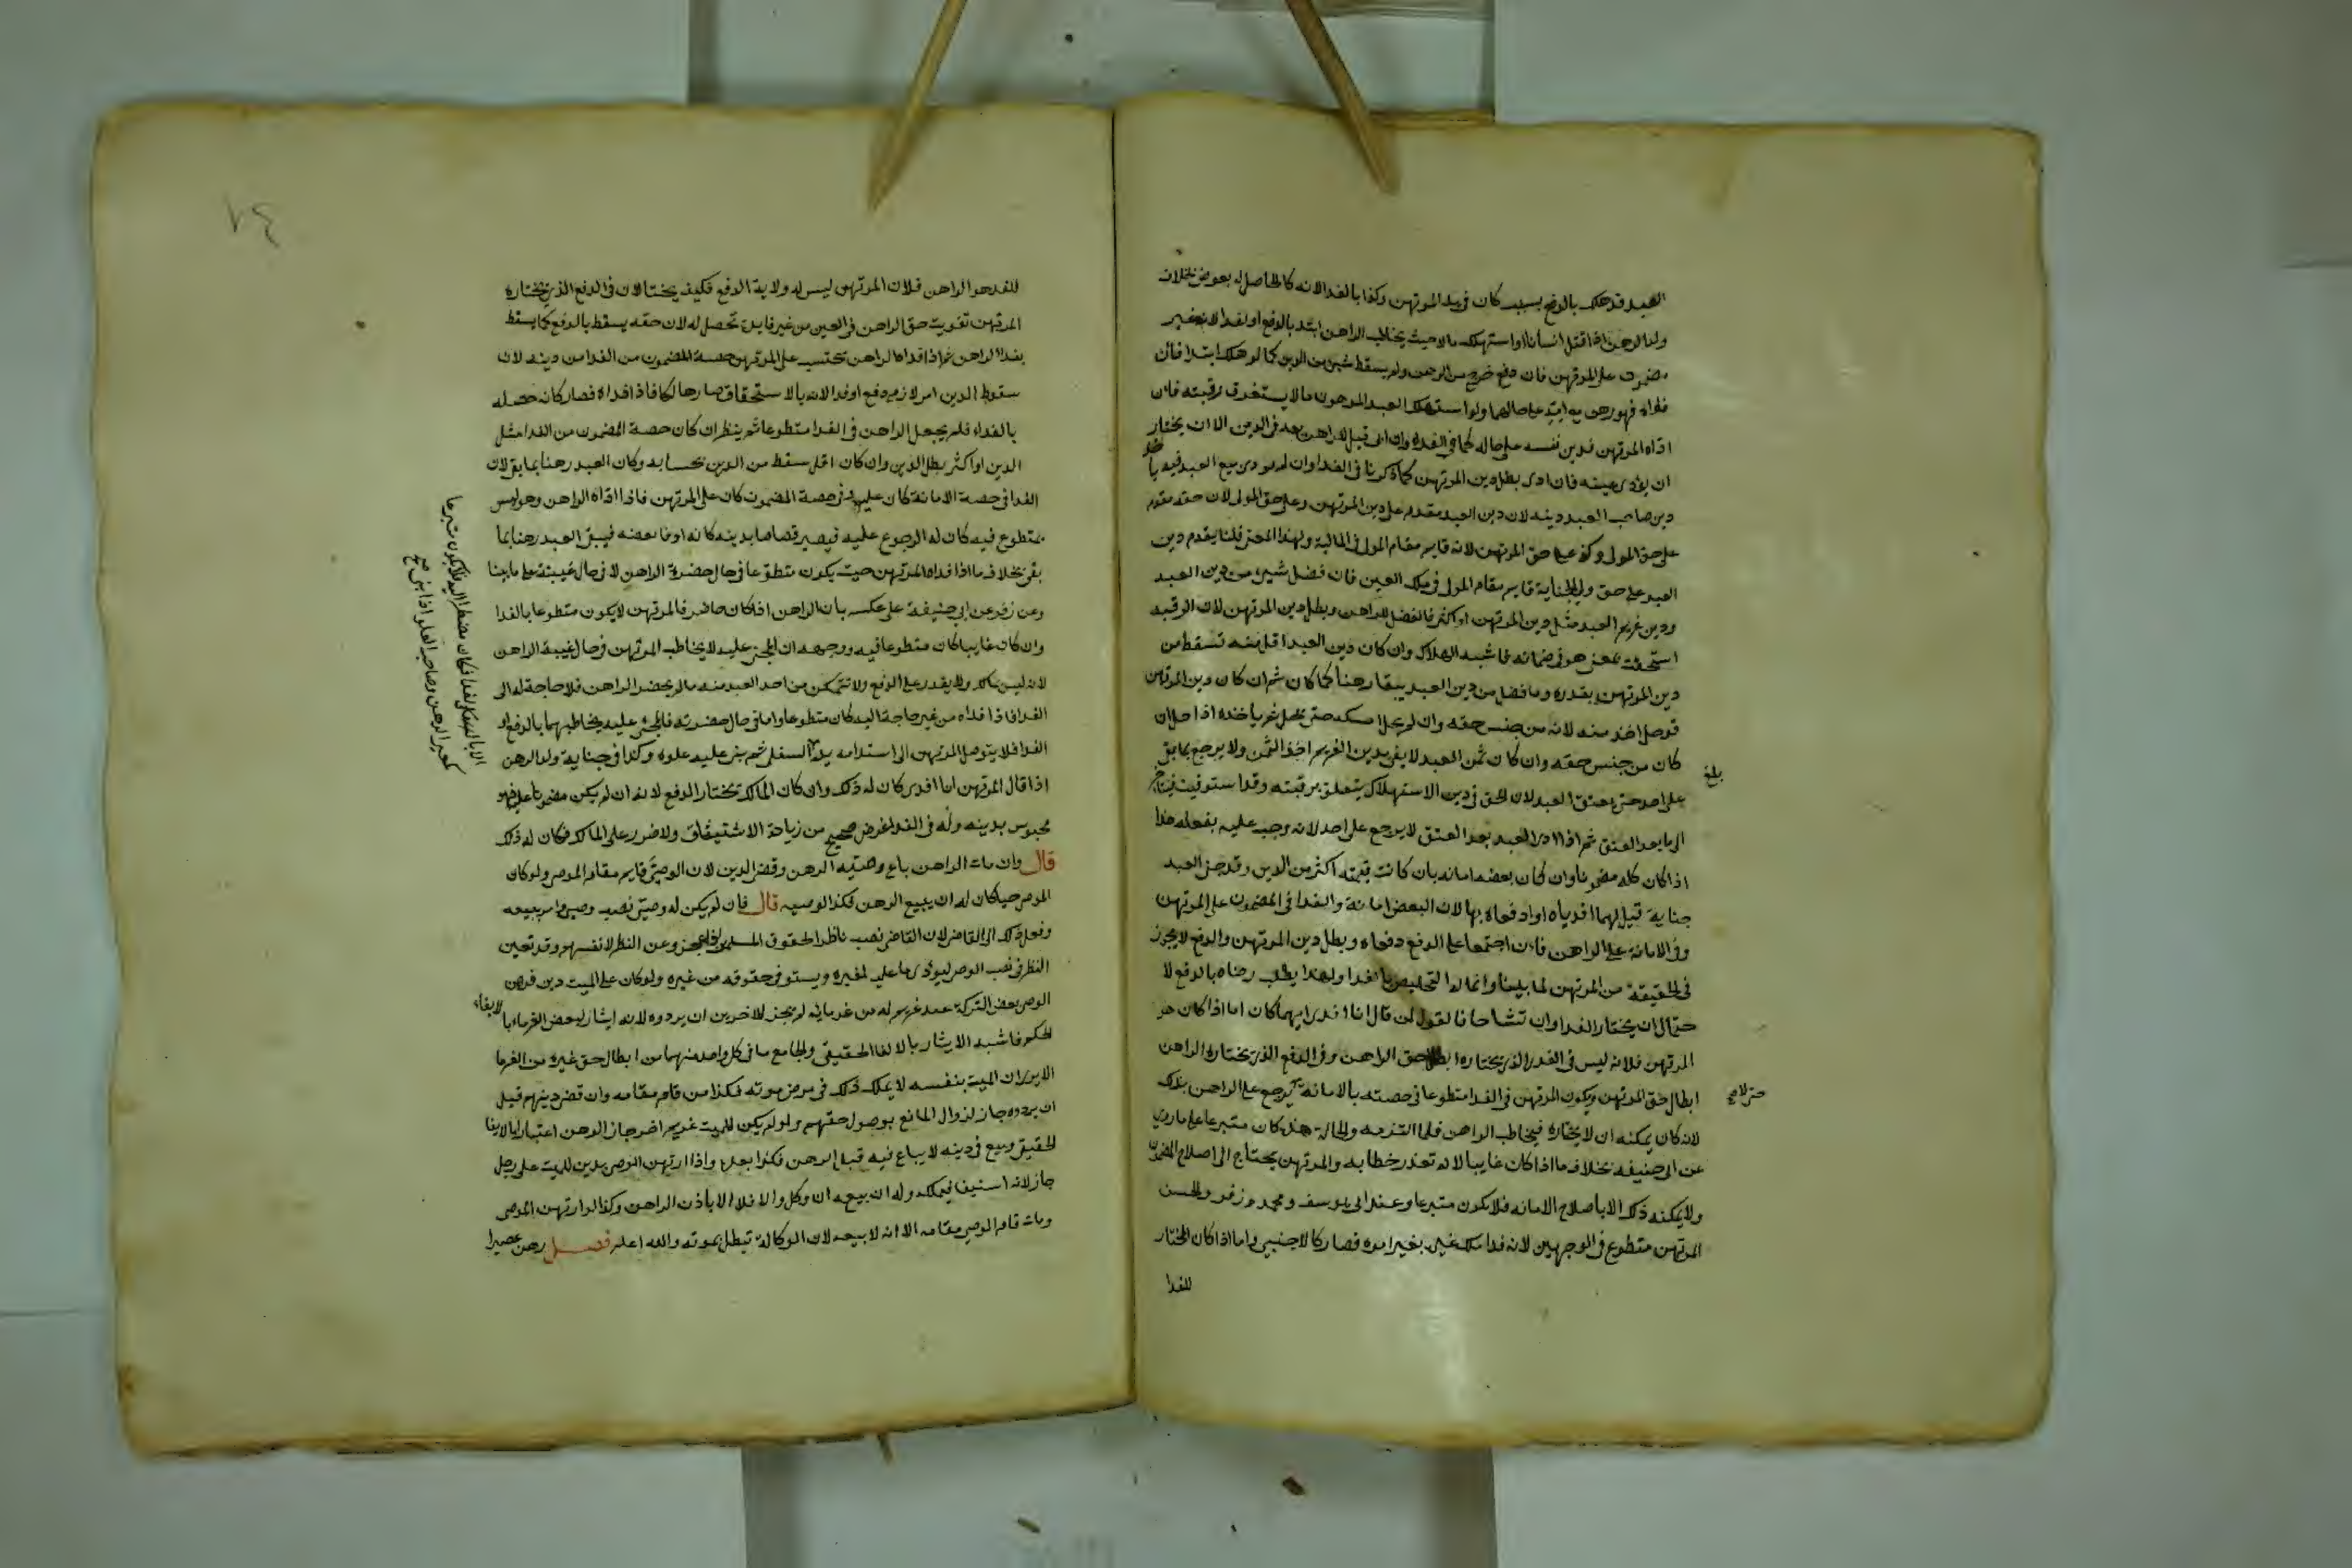 العبد قد هلك بالدفع بسبب كان في يد المرتهن وكذا بالفدا لانه كالحاصل له بعوض بخلاف
ولد الرهن اذا قتل انسانا او استهلك مالا حيث يخاطب الراهن ابتدا بالدفع او الفدا لانه غير
مضمون على المرتهن فان دفع خرج من الرهن ولم يسقط شيء من الدين كما لو هلك ابتدا فان
فداه فهو رهن مع امه على حالهما ولو استهلك العبد المرهون مالا يستغرق رقبته فان
اداه المرتهن فدين نفسه على حاله كما في الفدا وان ابى قيل للراهن بعه في الدين الا ان يختار
ان يؤدى عينه فان ادى بطل دين المرتهن كما ذكرنا في الفدا وان لم يود وبيع العبد فيه ياخذ
دين صاحب العبد دينه لان دين العبد مقدم على دين المرتهن وعلى حق المولى لان حقه مقدم
على حق المولى وكذا على حق المرتهن لانه قايم مقام المولى في المالية ولهذا المعنى قلنا يقدم دين
العبد على حق ولي الجناية قايم مقام المولى في ملك العين فان فضل شيء من دين العبد
ودين غريم العبد مثل دين المرتهن او اكثر فالفضل للراهن وبطل دين المرتهن لان الرقبة
استحقت لمعنى هو في ضمانه فاشبه الهلاك وان كان دين العبد اقل منه تسقط من
دين المرتهن بقدره وما فضل من دين العبد يبقا رهنا كما كان ثم ان كان دين المرتهن
قد حل اخذ منه لانه من جنس حقه وان لم يحل امسكه حتى يحل ثم ياخذه اذا حل ان
كان من جنس حقه وان كان ثمن العبد لا يفي بدين الغريم اخذ الثمن ولا يرجع بما بقي
بلغ
على احد حتى يعتق العبد لان الحق في دين الاستهلاك يتعلق برقبته وقد استوفيت فيتاخر
الى ما بعد العتق ثم اذا ادى العبد بعد العتق لا يرجع على احد لانه وجب عليه بفعله هذا
اذا كان كله مضمونا وان كان بعضه امانه بان كانت قيمته اكثر من الدين وقد جنى العبد
جناية قيل لهما افدياه او ادفعاه بها لان البعض امانة والفدا في المضمون على المرتهن
وفي الامانة على الراهن فان اجتمعا على الدفع دفعاه وبطل دين المرتهن والدفع لا يجوز
في الحقيقة من المرتهن لما بينا وانما له التخليص بالفدا ولهذا يطلب رضاه بالدفع لا
حتى لا صح
حتى ان يختار الفدا وان تشاحا فالقول لمن قال انا افدي ايهما كان اما اذا كان هو
المرتهن فلانه ليس في الفدا الذي يختاره ابطال حق الراهن وفي الدفع الذي يختاره الراهن
ابطال حق المرتهن ويكون المرتهن في الفدا متطوعا في حصته بالامانة يرجع على الراهن بذلك
لانه كان يمكنه ان لا يختاره فيخاطب الراهن فلما التزمه والحالة هذه كان متبرعا على ما روي
عن ابي حنيفه بخلاف ما اذا كان غايبا لانه تعذر خطابه والمرتهن يحتاج الى اصلاح المضمون
ولا يمكنه ذلك الا باصلاح الامانه فلا يكون متبرعا وعند ابي يوسف ومحمد وزفر والحسن
المرتهن متطوع في الوجهين لانه فدا ملك غيره بغير امره فصار كالاجنبي واما اذا كان المختار
للفدا
٢٤
للفدا هو الراهن فلان المرتهن ليس له ولاية الدفع فكيف يختاره لان في الدفع الذي يختاره
المرتهن تفويت حق الراهن في العين من غير فايدة تحصل له لان حقه يسقط بالدفع كما يسقط
بفدا الراهن ثم اذا فداه الراهن تحتسب على المرتهن حصة المضمون من الفدا من دينه لان
سقوط الدين امر لازم دفع او فدا لانه بالاستحقاق صار هالكا فاذا فداه فصار كانه حصله
بالفداء فلم يجعل الراهن في الفدا متطوعا ثم ينظر ان كان حصة المضمون من الفدا مثل
الدين او اكثر بطل الدين وان كان اقل سقط من الدين بحسابه وكان العبد رهنا بما بقي لان
الفدا في حصة الامانة كان عليه وفي حصة المضمون كان على المرتهن فاذا اداه الراهن وهو ليس
بمتطوع فيه كان له الرجوع عليه فيصير قصاصا بدينه كانه اوفا بعضه فيبقى العبد رهنا بما
بقي بخلاف ما اذا فداه المرتهن حيث يكون متطوعا في حال حضرة الراهن لا في حال غيبته على ما بينا
وعن زفر عن ابي حنيفة على عكسه بان الراهن اذا كان حاضرا فالمرتهن لا يكون متطوعا بالفدا
وان كان غايبا كان متطوعا فيه ووجهه ان المجني عليه لا يخاطب المرتهن في حال غيبة الراهن
لانه ليس بمالك ولا يقدر على الدفع ولا تتمكن من اخذ العبد منه مالم يحضر الراهن فلا حاجة له الى
الفدا فاذا فداه من غير حاجة اليه كان متطوعا واما في حال حضرته فالمجني عليه يخاطبهما بالدفع او
الفدا فلا يتوصل المرتهن الى استدامه يده السفلى ثم بنى عليه علوه وكذا في جناية ولد الرهن
الا بالفدا فكان مضطرا اليه فلا يكون متبرعا
كمعير الرهن وصاحب العلو اذا بنى صح
اذا قال المرتهن انا افدي كان له ذلك وان كان المالك يختار الدفع لانه ان لم يكن مضمونا عليه فهو
محبوس بدينه وله في الفدا غرض صحيح من زيادة الاستيثاق ولا ضرر على المالك فكان له ذلك
قال وان مات الراهن باع وصيه الرهن وقضى الدين لان الوصي قايم مقام الموصي ولو كان
الموصي حيا كان له ان يبيع الرهن فكذا لوصيه قال فان لم يكن له وصي نصب وصي وامر ببيعه
وفعل ذلك الى القاضي لان القاضي نصب ناظرا لحقوق المسلمين اذا عجزوا عن النظر لانفسهم وقد تعين
النظر في نصب الوصي ليودى ما عليه لغيره ويستوفي حقوقه من غيره ولو كان على الميت دين فرهن
الوصي بعض التركة عند غريم له من غرمايه لم يجز للاخرين ان يردوه لانه ايثار لبعض الغرماء بالايفاء
الحكمي فاشبه الايثار بالايفا الحقيقي والجامع ما في كل واحد منهما من ابطال حق غيره من الغرما
الا يرى ان الميت بنفسه لا يملك ذلك في مرض موته فكذا من قام مقامه وان قضى دينهم قبل
ان يردوه جاز لزوال المانع بوصول حقهم ولو لم يكن للميت غريم اخر جاز الرهن اعتبارا بالايفا
الحقيقي وبيع في دينه لانه يباع فيه قبل الرهن فكذا بعده واذا ارتهن الوصي بدين للميت على رجل
جاز لانه استيفا فيملكه وله ان يبيعه ان وكل والا فلا الا باذن الراهن وكذا لو ارتهن الموصي
ومات قام الوصي مقامه الا انه لا يبيعه لان الوكالة تبطل بموته والله اعلم فصل رهن عصيرا